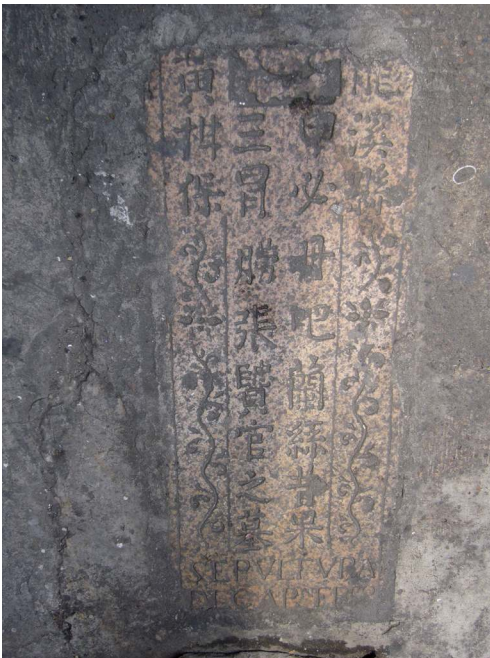 龍溪縣
甲必毋吧蘭絲昔呆
三冒勝張賢官之墓
黃保
SEPVLTVRA